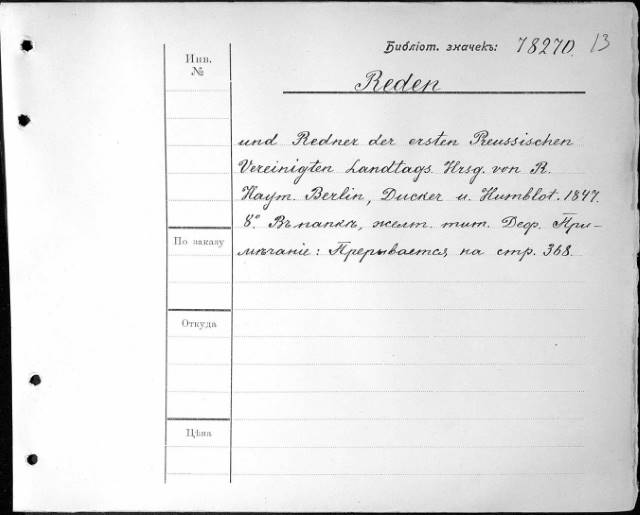 Библіот. значекъ: 78270. 13
Инв.
№
Reden
und Redner der ersten Preussischen
Vereinigten Landtags. Hrsg. von R.
Haym. Berlin, Ducker u. Humblot. 1847.
8°. Въ папкѣ, желт. тит. Деф. При-
мѣчаніе: Прерывается на стр. 368.
По заказу
Откуда
Цѣна